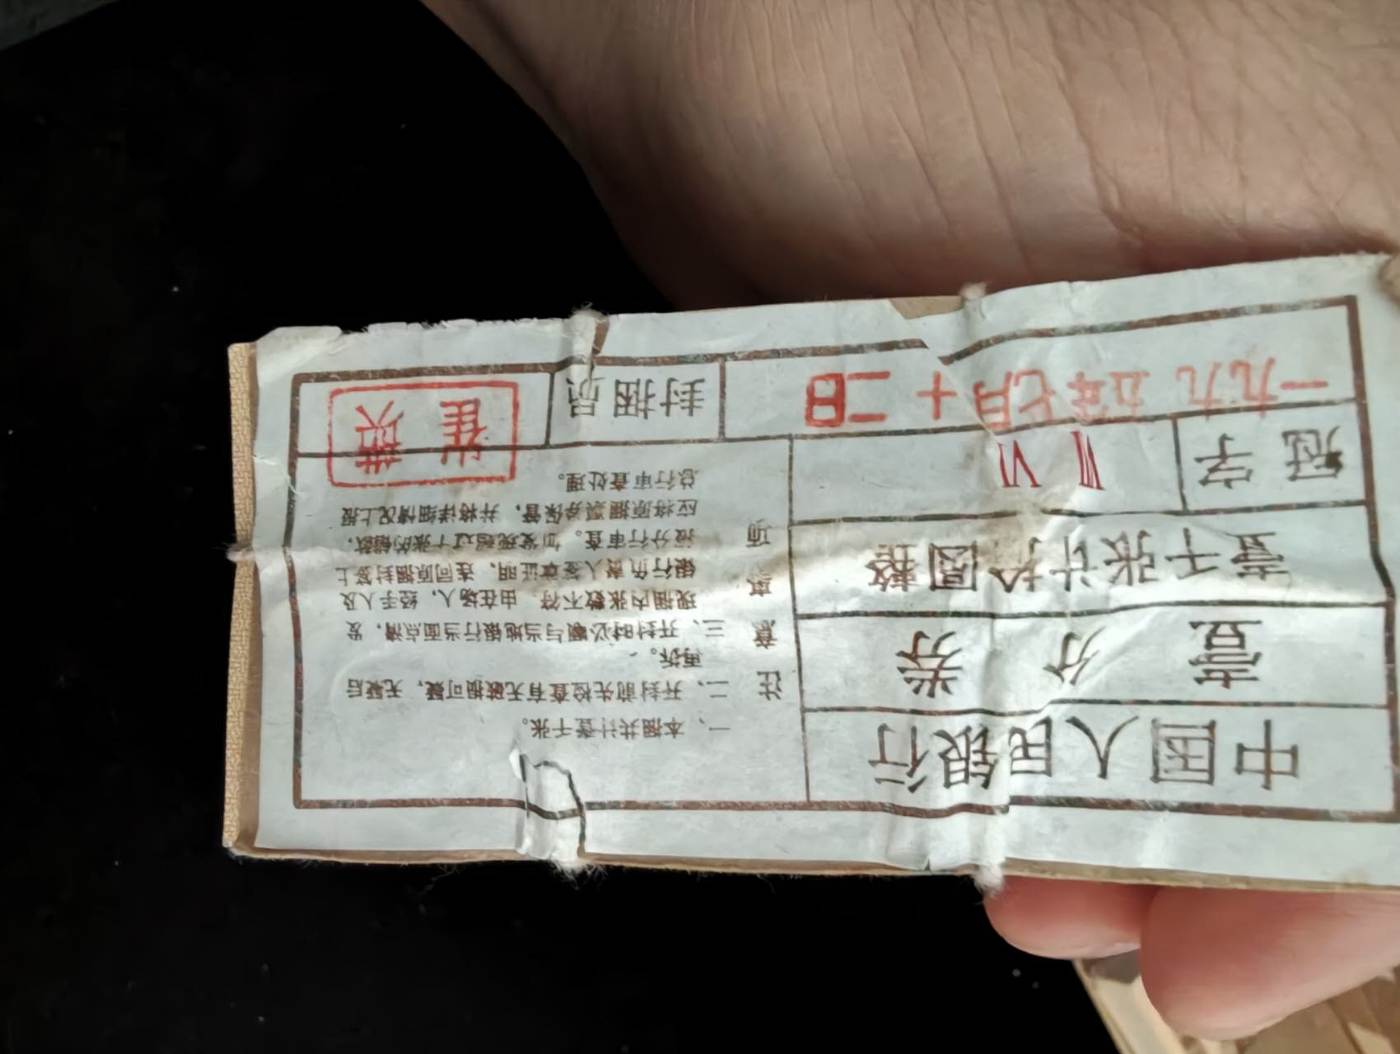 中国人民银行
壹分券
壹千张计拾圆整
冠字 Ⅶ Ⅵ
一九九五年七月十二日
注意事项
一、本捆共计壹千张。
二、开封前先检查有无破捆可疑，无疑后
再拆。
三、开封时必须与当地银行当面点清，发
现捆内张数不符，由在场人、经手人及
银行负责人签章证明，连同原捆封签上
报分行审查。如发现超过十张的差数，
应将原捆票券保管，并将详细情况上报
总行审查处理。
封捆员
崔